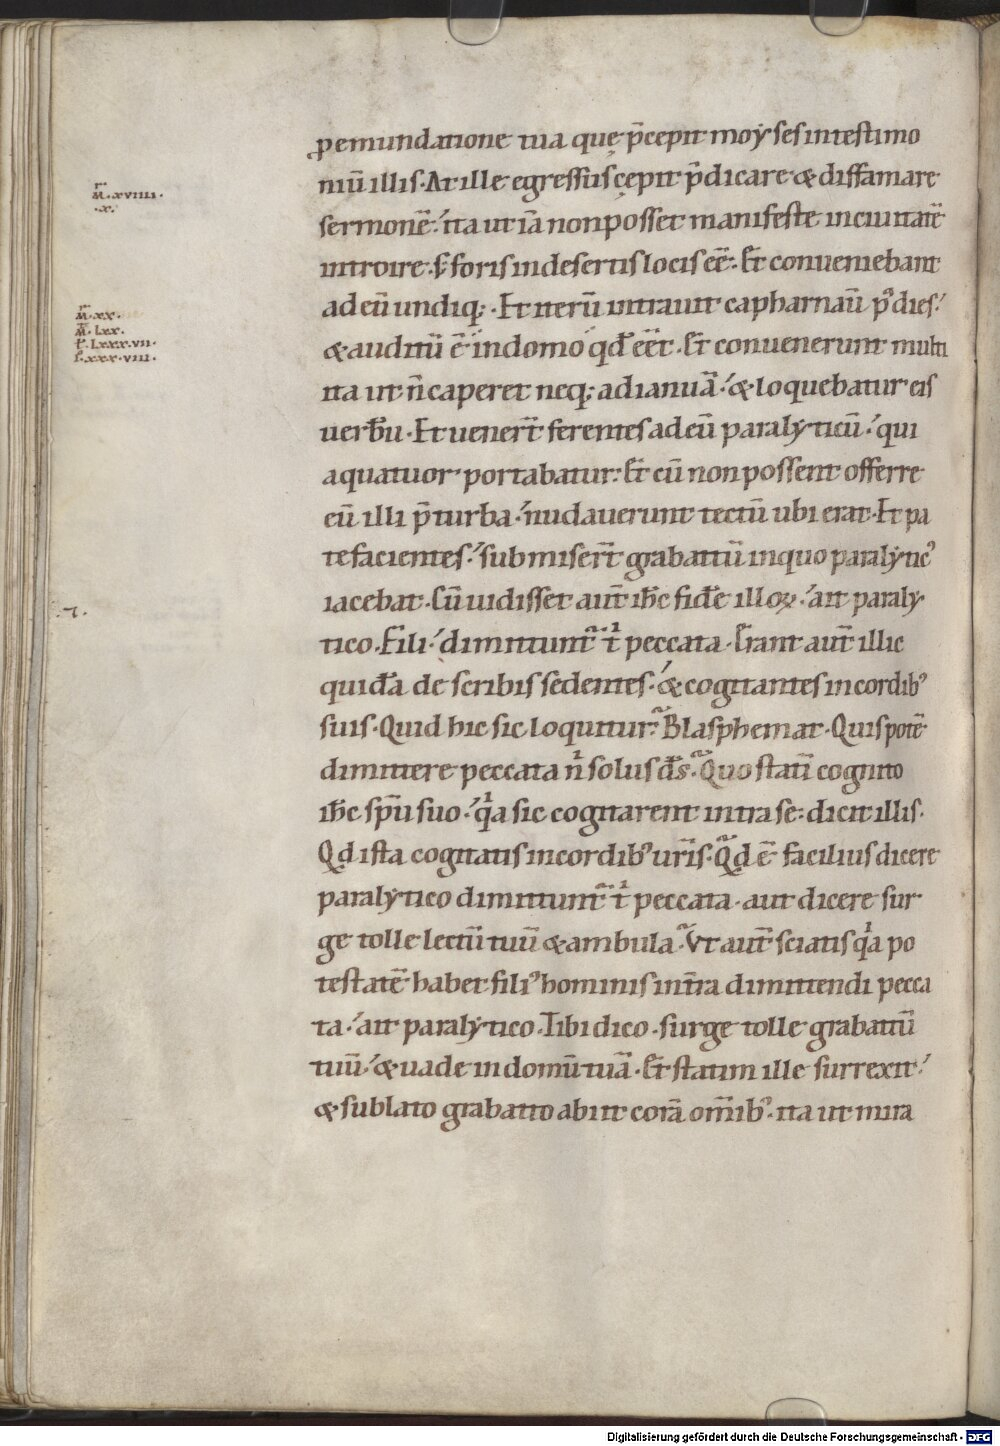 M̅.xviiii.
.x.
M̅.xx.
M̅.Lxx.
L̅.Lxxx.vii.
I̅.xxx.viii.
⁊.
ꝓ emundatione tua que p̄cepit moẏses in testimo
niū illis. At ille egressus cepit p̄dicare & diffamare
sermonē. ita ut iā non posset manifeste in ciuitatē
introire. s; foris in desertis locis eē. Et conueniebant
ad eū undiq;. Et iterū intrauit capharnaū p̄ dies.
& auditū ē in domo qđ eēt. Et conuenerunt multi
ita ut n̄ caperet neq; ad ianuā. & loquebatur eis
uerƀu. Et uener̄t ferentes ad eū paralẏticū. qui
a quatuor portabatur. Et cū non possent offerre
eū illi p̄ turba. nudauerunt tectū ubi erat. Et pa
tefacientes. submiser̄t grabattū in quo paralẏticꝰ
iacebat. Cū uidisset aut̄ ih̄c fidē illoꝝ. ait paralẏ
tico. Fili. dimittunt᷑ tⁱ peccata. Erant aut̄ illic
quidā de scribis sedentes. & cogitantes in cordibꝰ
suis. Quid hic sic loquitur. Blasphemat. Quis potē
dimittere peccata nⁱ solus d̄s. Quo statī cognito
ih̄c sp̄u suo. qⁱa sic cogitarent intra se. dicit illis.
Qd ista cogitatis in cordibꝰ ur̄is. Qd ē facilius dicere
paralẏtico dimittunt᷑ tⁱ peccata. aut dicere sur
ge tolle lectū tuū & ambula. Vt aut̄ sciatis qⁱa po
testatē habet filiꝰ hominis in t̄ra dimittendi pecca
ta. ait paralẏtico. Tibi dico. surge tolle grabattū
tuū. & uade in domū tuā. Et statim ille surrexit.
& sublato grabatto abiit corā om̄ibꝰ. ita ut mira
Digitalisierung gefördert durch die Deutsche Forschungsgemeinschaft - DFG